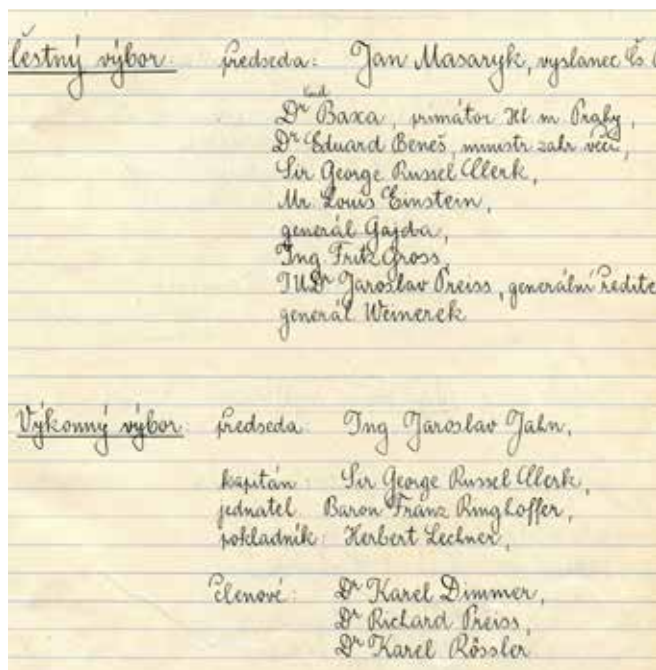 čestný výbor: předseda: Jan Masaryk, vyslanec Čs.
Karel
Dr Baxa, primátor Hl. m. Prahy,
Dr Eduard Beneš, ministr zahr. věcí,
Sir George Russel Clerk,
Mr. Louis Einstein,
generál Gajda,
Ing. Fritz Gross,
JUDr Jaroslav Preiss, generální ředite
generál Weinerek
Výkonný výbor: předseda: Ing Jaroslav Jahn,
kapitán: Sir George Russel Clerk,
jednatel: Baron Franz Ringhoffer,
pokladník: Herbert Lechner,
členové: Dr Karel Dimmer,
Dr Richard Preiss,
Dr Karel Rössler